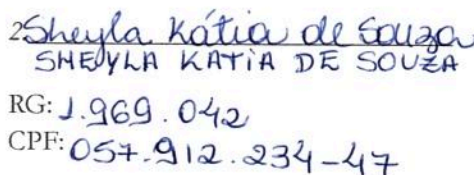 2 Sheyla Kátia de Souza
SHEYLA KATIA DE SOUZA
RG: 1.969.042
CPF: 057.912.234-47